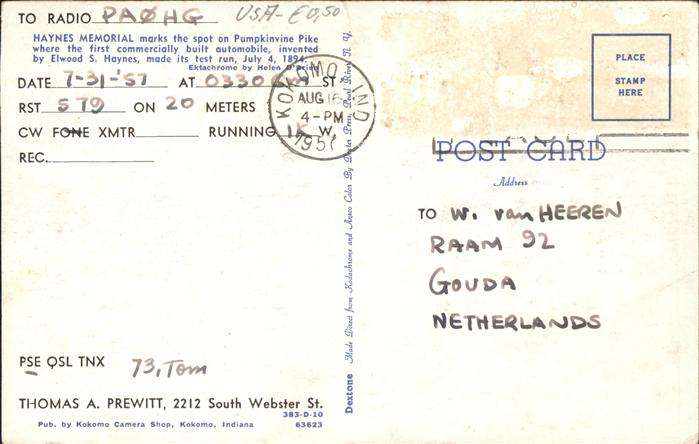 TO RADIO PAØHG USA-£0,50
HAYNES MEMORIAL marks the spot on Pumpkinvine Pike
where the first commercially built automobile, invented
by Elwood S. Haynes, made its test run, July 4, 1894.
Ektachrome by Helen O'Brien
DATE 7-31-'57 AT 0330 ST
RST 579 ON 20 METERS
CW FONE XMTR RUNNING 1K W.
REC.
PSE QSL TNX 73, Tom
THOMAS A. PREWITT, 2212 South Webster St.
383-D-10
Pub. by Kokomo Camera Shop, Kokomo, Indiana 63623
KOKOMO IND
AUG 16
4-PM
1957
Dextone Made Direct from Kodachrome and Ansco Color By Dexter Press, Pearl River, N. Y.
PLACE
STAMP
HERE
POST CARD
Address
TO W. van HEEREN
RAAM 92
GOUDA
NETHERLANDS